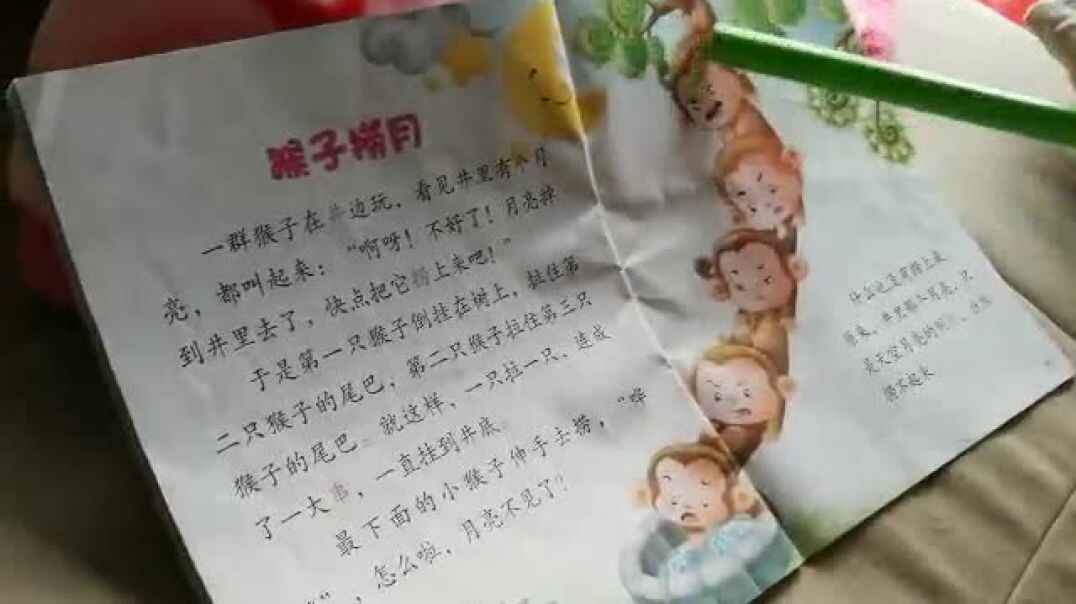 猴子捞月
一群猴子在井边玩,看见井里有个月
亮,都叫起来:“啊呀!不好了!月亮掉
到井里去了,快点把它捞上来吧!”
于是第一只猴子倒挂在树上,拉住第
二只猴子的尾巴,第二只猴子拉住第三只
猴子的尾巴。就这样,一只拉一只,连成
了一大串,一直挂到井底。
最下面的小猴子伸手去捞,“哗
”,怎么啦,月亮不见了?
什么也没有捞上来
原来,井里那个月亮,只
是天空月亮的
捞不起来